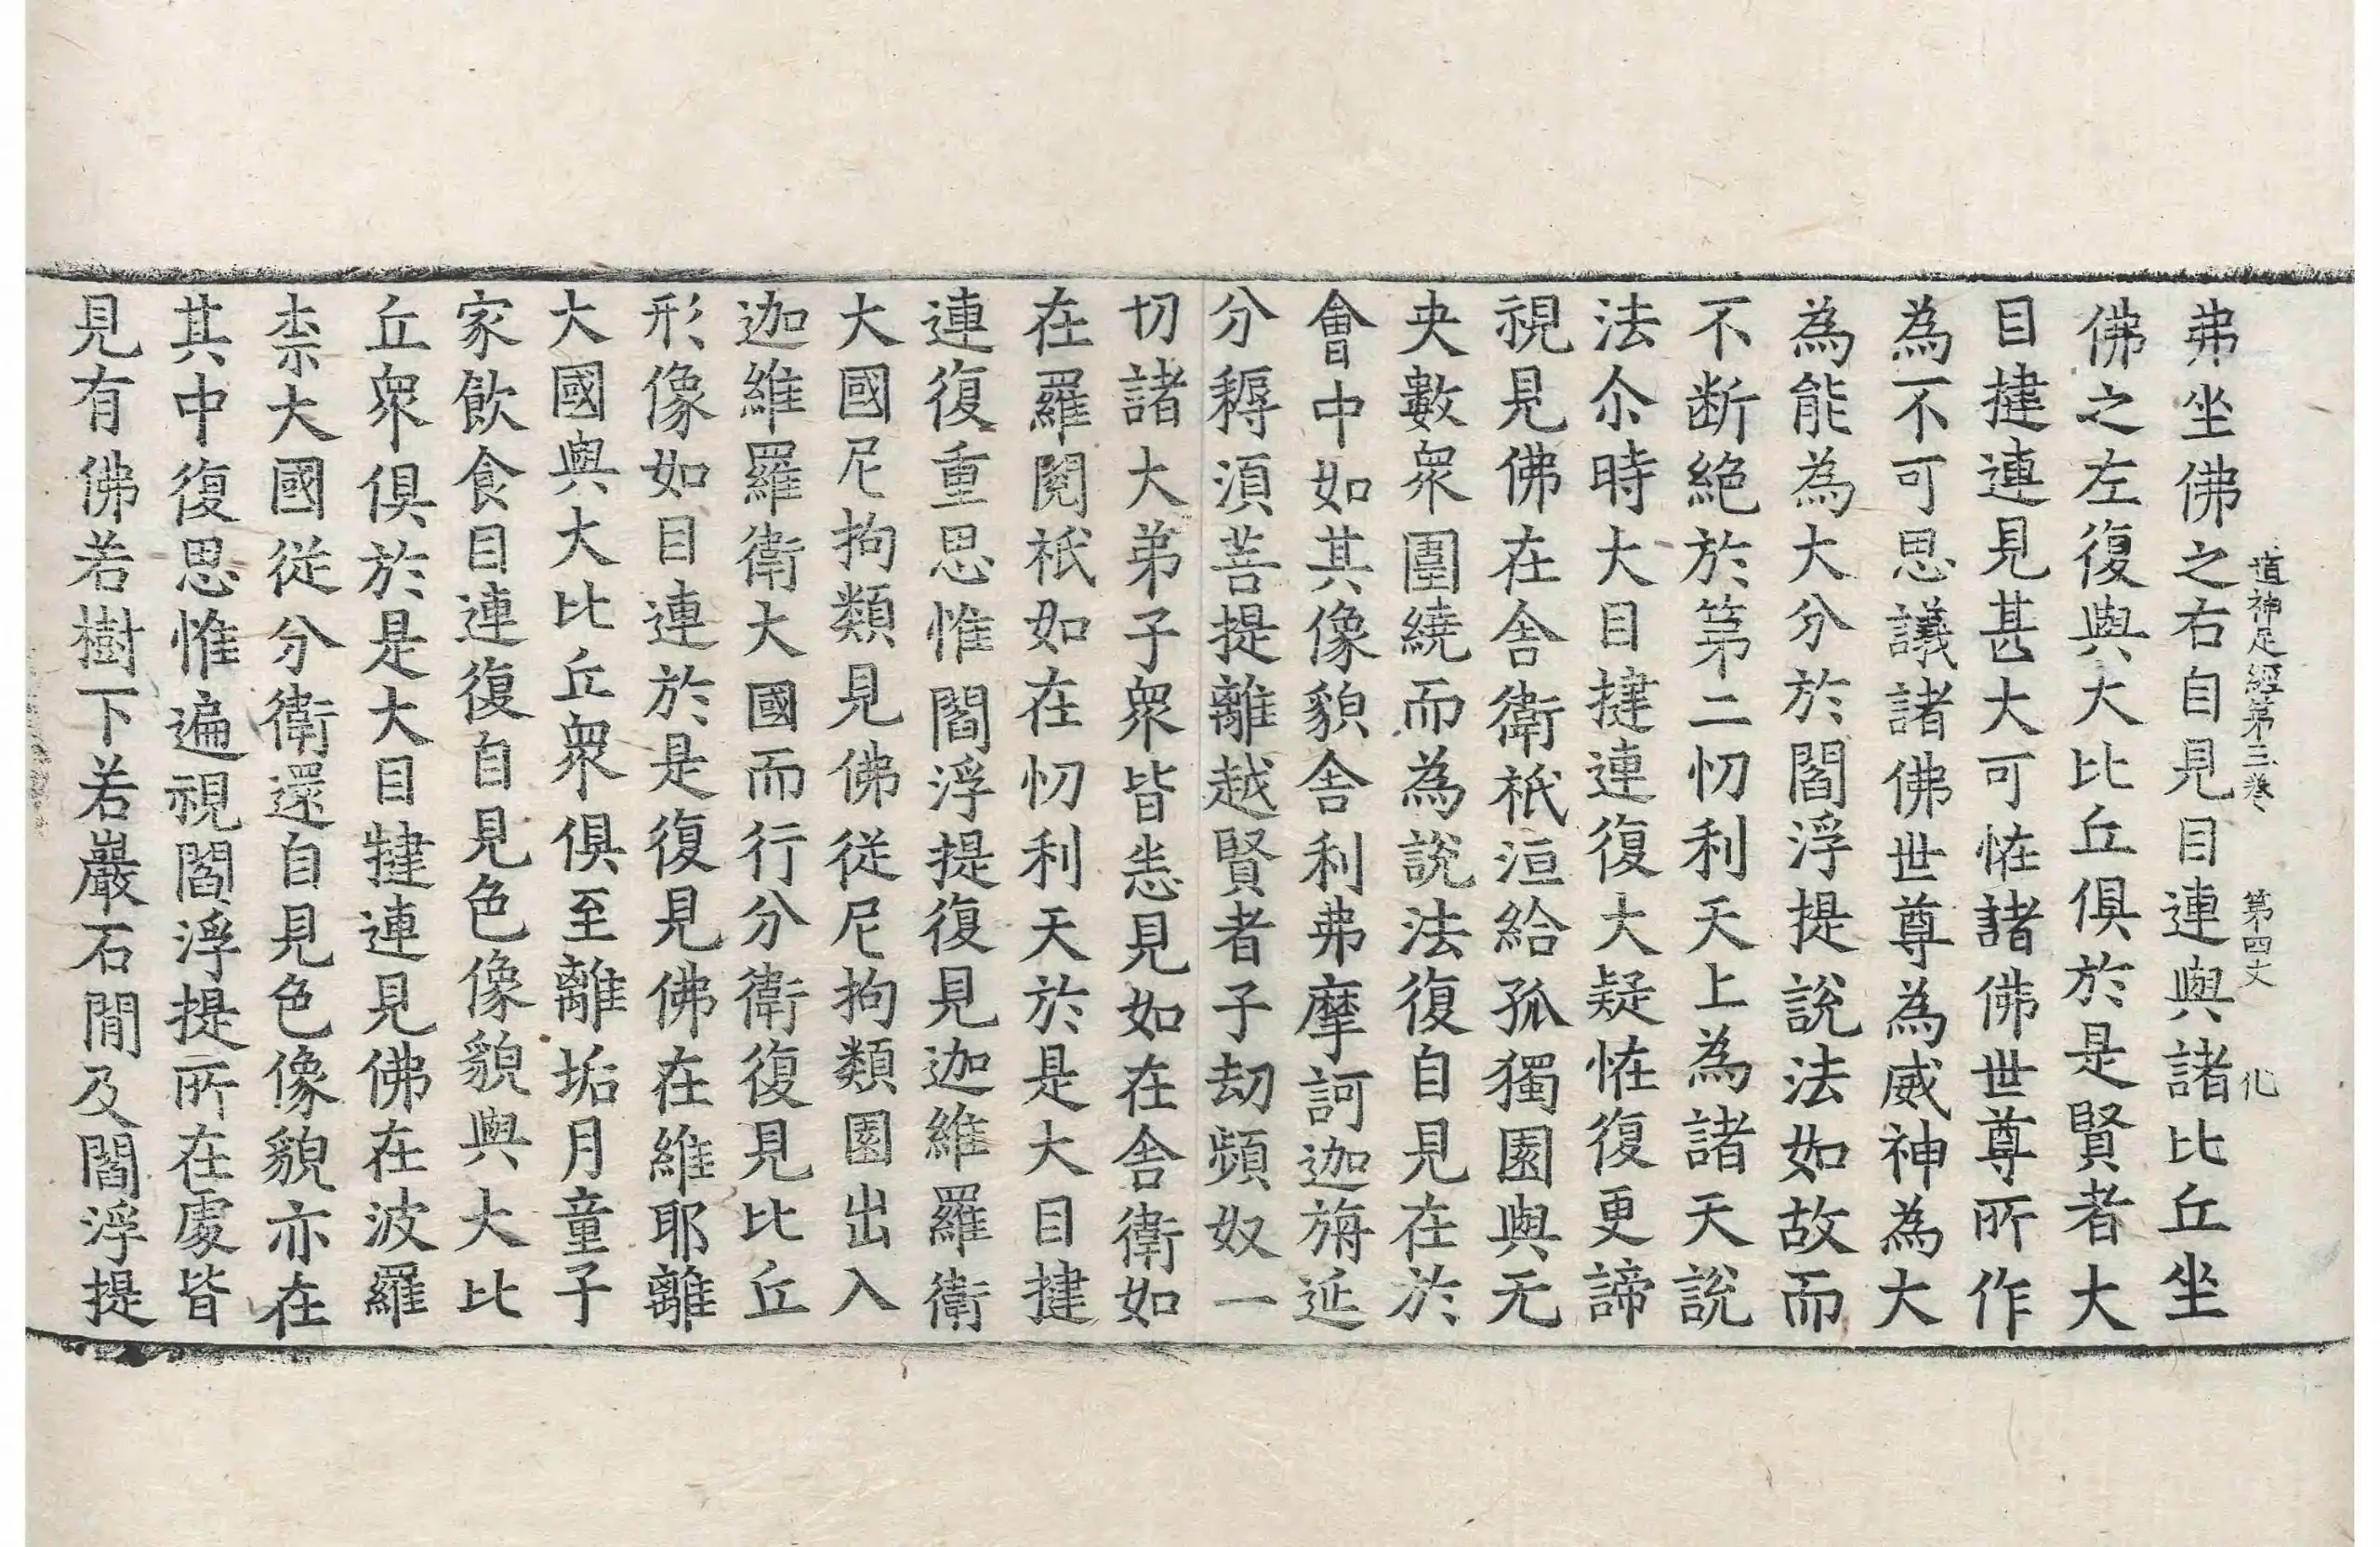 道神足經第三卷 第四丈 化
弗坐佛之右自見目連與諸比丘坐
佛之左復與大比丘俱於是賢者大
目揵連見甚大可恠諸佛世尊所作
為不可思議諸佛世尊為威神為大
為能為大分於閻浮提說法如故而
不断絶於第二忉利天上為諸天說
法尒時大目揵連復大疑恠復更諦
視見佛在舎衛祇洹給孤獨園與无
央數衆圍繞而為說法復自見在於
會中如其像貌舎利弗摩訶迦旃延
分耨湏菩提離越賢者子劫頻奴一
切諸大弟子衆皆悉見如在舎衛如
在羅閱祇如在忉利天於是大目揵
連復重思惟閻浮提復見迦維羅衛
大國尼拘類見佛從尼拘類園出入
迦維羅衛大國而行分衛復見比丘
形像如目連於是復見佛在維耶離
大國與大比丘衆俱至離垢月童子
家飲食目連復自見色像貌與大比
丘衆俱於是大目犍連見佛在波羅
柰大國從分衛還自見色像貌亦在
其中復思惟遍視閻浮提所在處皆
見有佛若樹下若巖石閒及閻浮提